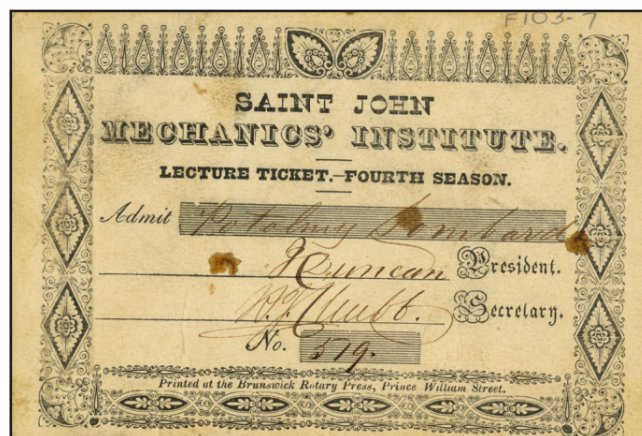 F103-7
SAINT JOHN
MECHANICS' INSTITUTE.
LECTURE TICKET.—FOURTH SEASON.
Admit Potolmy Lombard
Duncan President.
Chubb. Secretary.
No. 579.
Printed at the Brunswick Rotary Press, Prince William Street.